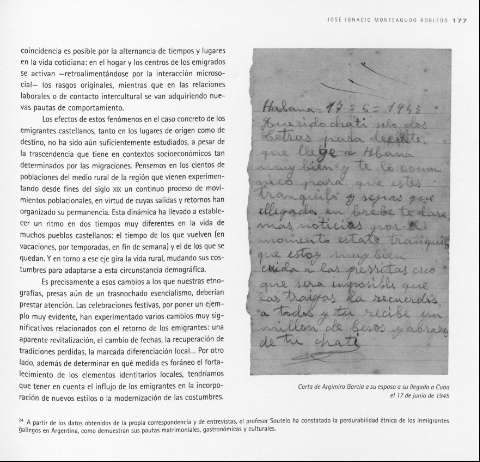 JOSÉ IGNACIO MONTEAGUDO ROBLEDO 177
coincidencia es posible por la alternancia de tiempos y lugares
en la vida cotidiana: en el hogar y los centros de los emigrados
se activan —retroalimentándose por la interacción microso-
cial— los rasgos originales, mientras que en las relaciones
laborales o de contacto intercultural se van adquiriendo nue-
vas pautas de comportamiento.
Los efectos de estos fenómenos en el caso concreto de los
emigrantes castellanos, tanto en los lugares de origen como de
destino, no ha sido aún suficientemente estudiados, a pesar de
la trascendencia que tiene en contextos socioeconómicos tan
determinados por las migraciones. Pensemos en los cientos de
poblaciones del medio rural de la región que vienen experimen-
tando desde fines del siglo XIX un continuo proceso de movi-
mientos poblacionales, en virtud de cuyas salidas y retornos han
organizado su permanencia. Esta dinámica ha llevado a estable-
cer un ritmo en dos tiempos muy diferentes en la vida de
muchos pueblos castellanos: el tiempo de los que vuelven (en
vacaciones, por temporadas, en fin de semana) y el de los que se
quedan. Y en torno a ese eje gira la vida rural, mudando sus cos-
tumbres para adaptarse a esta circunstancia demográfica.
Es precisamente a esos cambios a los que nuestras etno-
grafías, presas aún de un trasnochado esencialismo, deberían
prestar atención. Las celebraciones festivas, por poner un ejem-
plo muy evidente, han experimentado varios cambios muy sig-
nificativos relacionados con el retorno de los emigrantes: una
aparente revitalización, el cambio de fechas, la recuperación de
tradiciones perdidas, la marcada diferenciación local... Por otro
lado, además de determinar en qué medida es foráneo el forta-
lecimiento de los elementos identitarios locales, tendríamos
que tener en cuenta el influjo de los emigrantes en la incorpo-
ración de nuevos estilos o la modernización de las costumbres.
Habana 17 = 6 = 1945
Querido chati solo dos
letras para decirte,
que llege a Abana
muy bien, te lo comu
nico para que estes
tranquila y sepas que
llegada en brebe te dare
mas noticias por
momento estate tranquila
que estoy muy bien
cuida a las perritas creo
que sera imposible que
las traigas da recuerdos
a todos y tu recibe un
millon de besos y abrazos
de tu chati
Carta de Argimiro García a su esposa a su llegada a Cuba
el 17 de junio de 1945
24 A partir de los datos obtenidos de la propia correspondencia y de entrevistas, el profesor Soutelo ha constatado la perdurabilidad étnica de los inmigrantes
gallegos en Argentina, como demuestran sus pautas matrimoniales, gastronómicas y culturales.